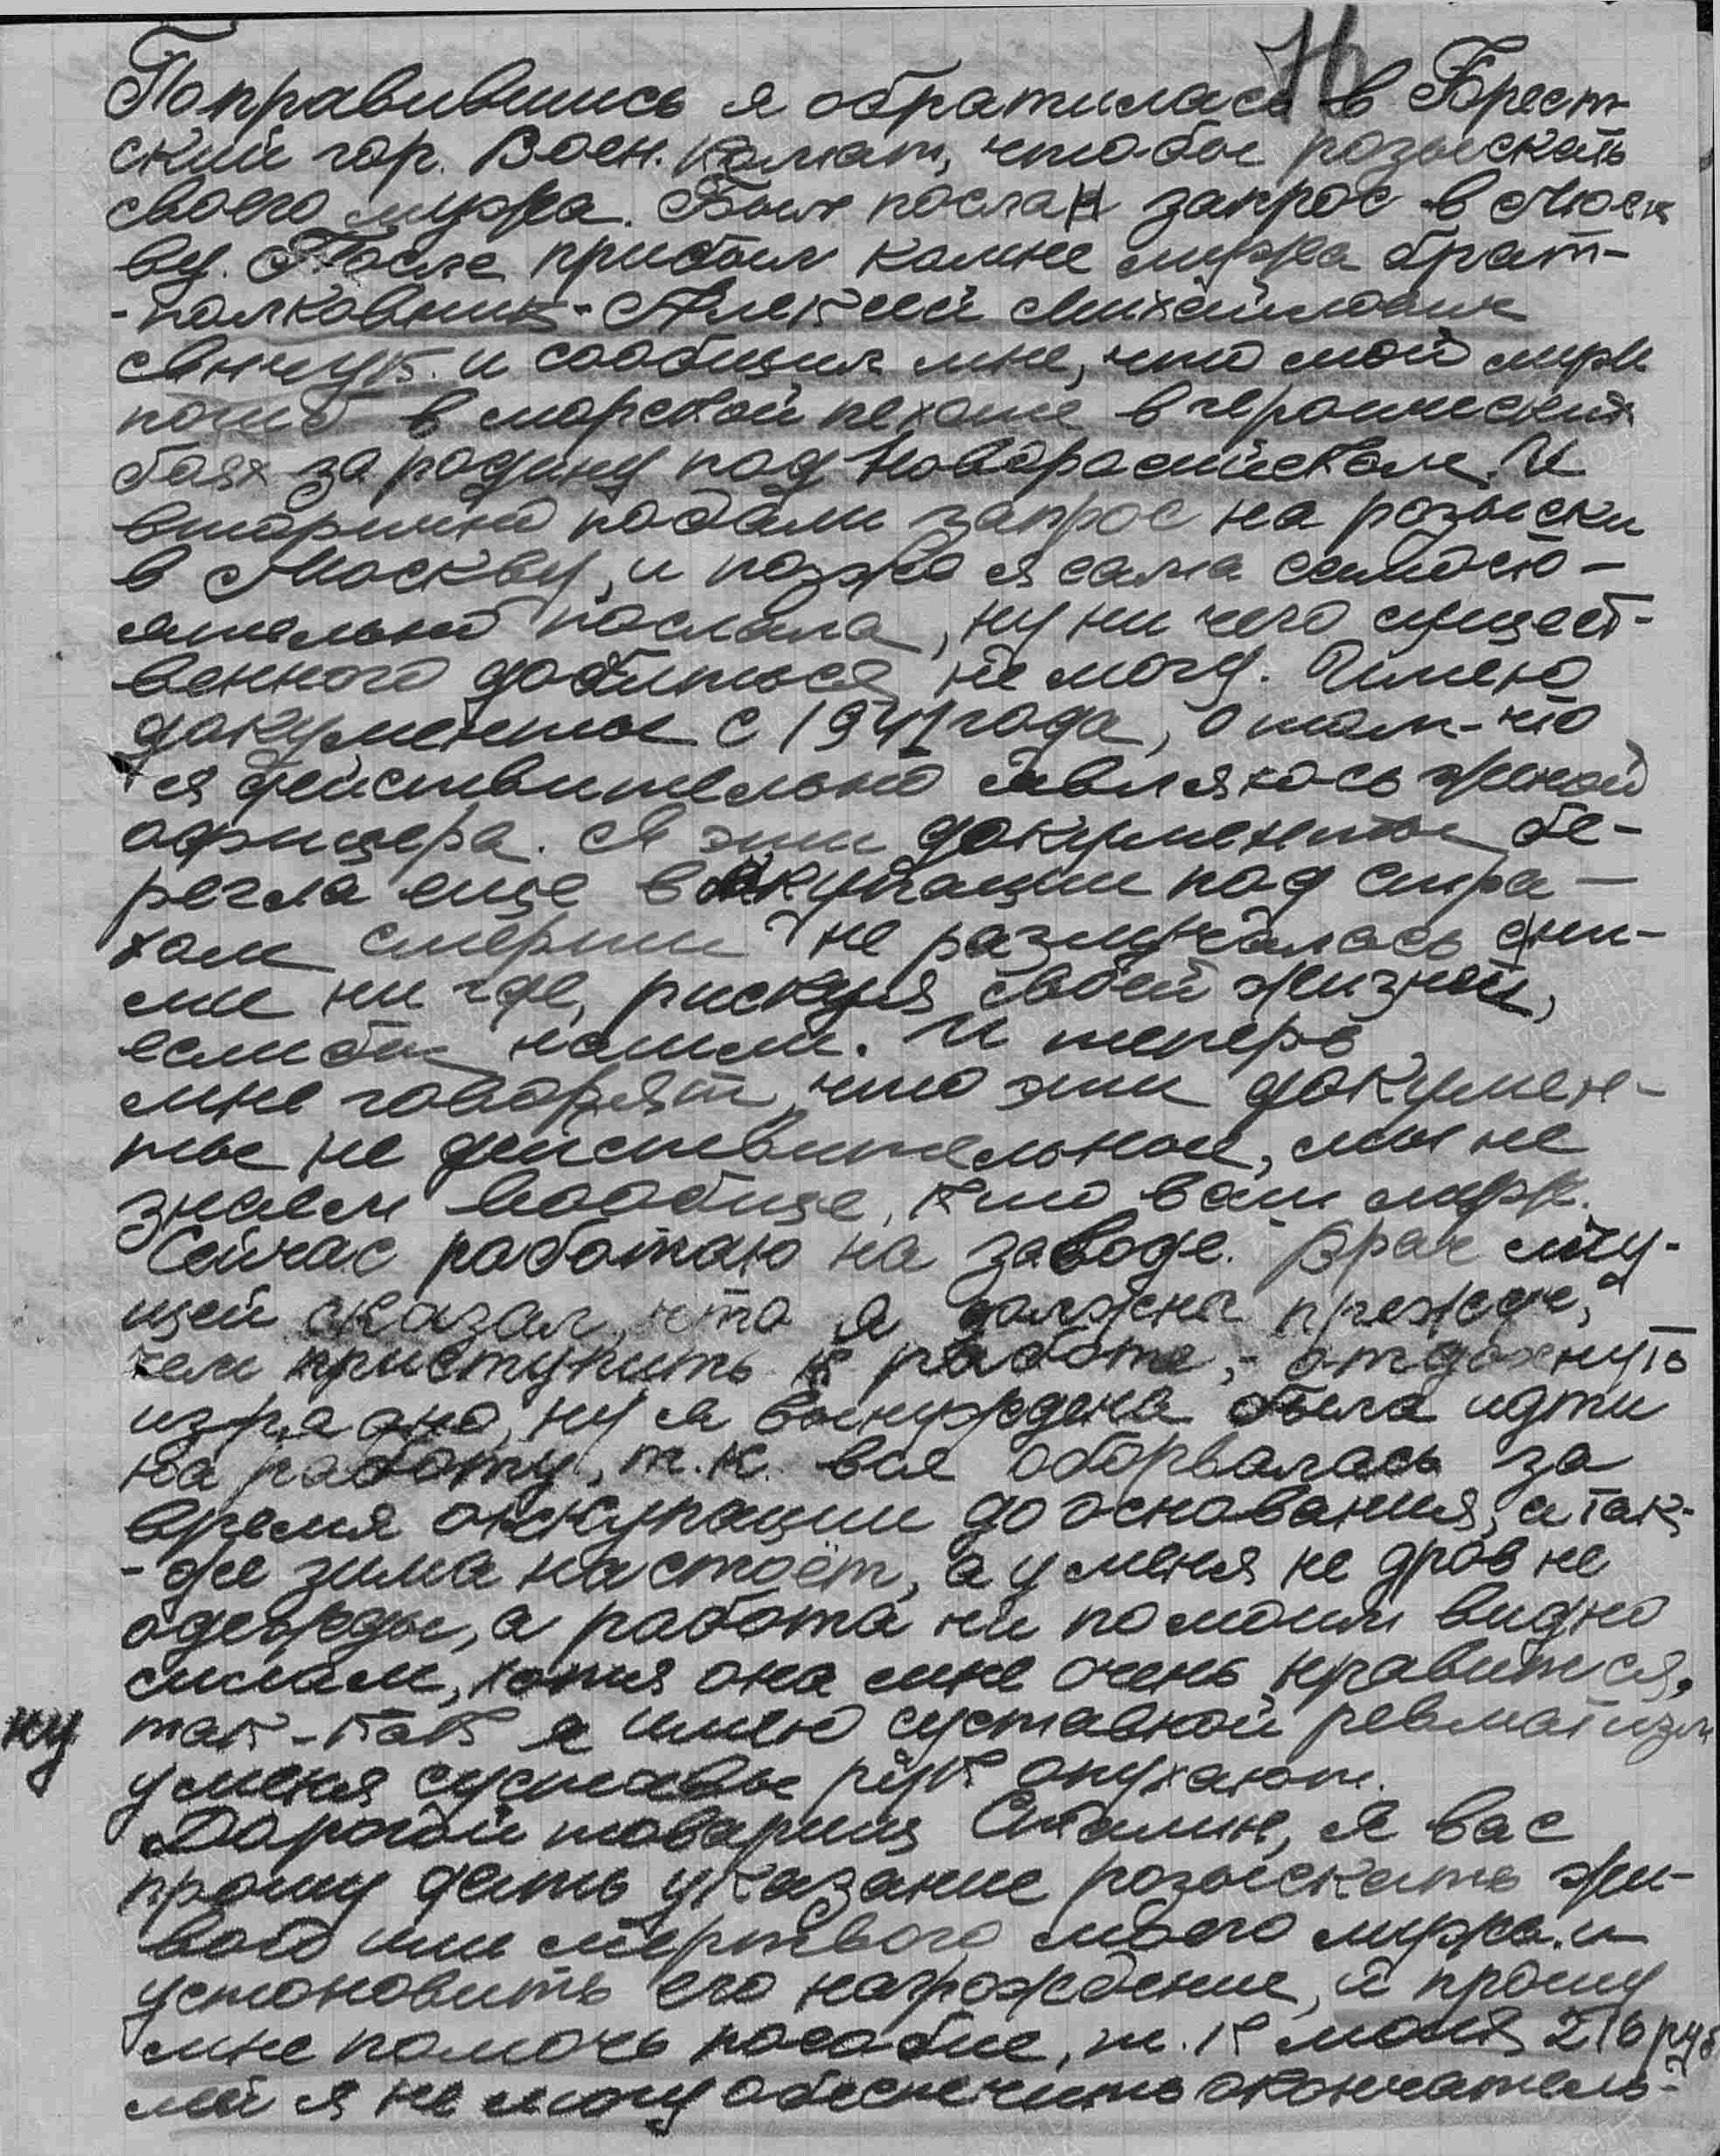 76
Поправившись я обратилась в Брест-
ский гор. Воен. Комат, что-бы розыскать
своего мужа. Был послан запрос в Моск
ву. После прибыл комне мужа брат-
-полковник- Алексей Михайлович
и сообщил мне, что мой муж
погиб в морской пехоте в героических
боях за родину под Новорасийском. И
вторично подали запрос на розыски
в Москву, и позжо я сама самосто-
ятельно послала, ну ни чего сущест-
венного добиться не могу. Имею
документы с 1941 года, о том-что
я действительно являюсь женой
офицера. Я эти документы бе-
регла еще в оккупации под стра-
хом смерти не разлучалась с ни-
ми ни где, рискуя своей жизней,
еслибы нашли. И теперь
мне говорят, что эти докумен-
ты не действительные, мы не
знаем вообще, кто ваш муж.
Сейчас работаю на заводе. Врач
сказал, что я должна прежде,
чем приступить к работе, - отдохнуть
изрядно, ну я вынуждена была идти
на работу, т.к. вся оборвалась за
время оккупации до основания, а так-
-же зима настоёт, а у меня не дров не
одежды, а работа ни помоим видно
силам, хотя она мне очень нравится,
ку так-как я имею суставной ревматизм
у меня суставы рук опухают.
Дорогой товарищ Сталин, я вас
прошу дать указание розыскать жи-
вого или мертвого моего мужа и
установить его награждение, и прошу
мне помочь пособие, т.к моня 216 руб
мей я не могу обеспечить окончатель-